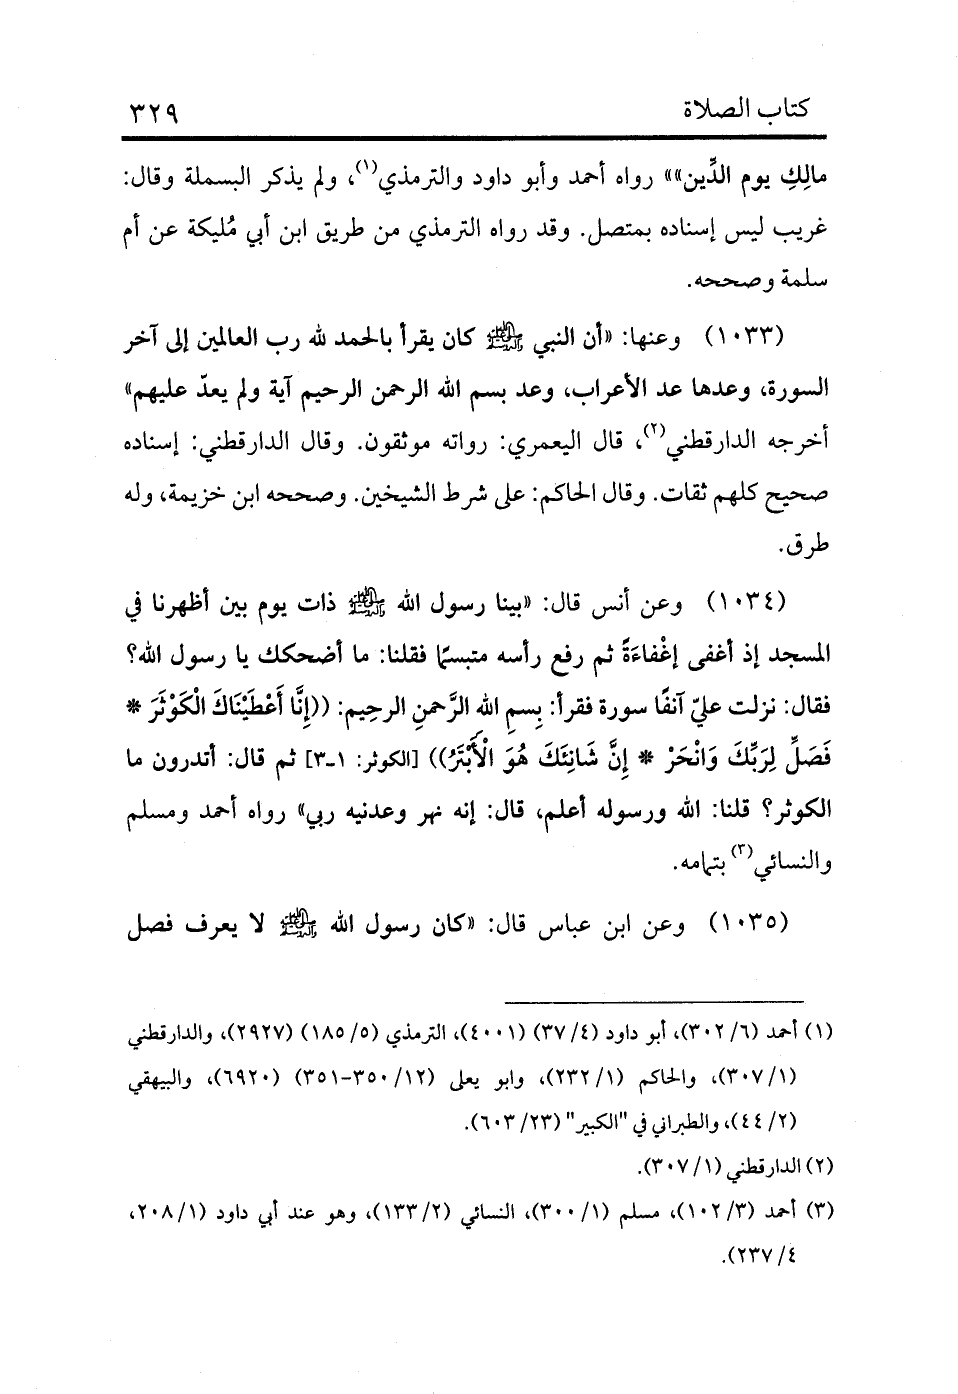 كتاب الصلاة ٣٢٩
مالِكِ يوم الدِّين»» رواه أحمد وأبو داود والترمذي(١)، ولم يذكر البسملة وقال:
غريب ليس إسناده بمتصل. وقد رواه الترمذي من طريق ابن أبي مُليكة عن أم
سلمة وصححه.
(١٠٣٣) وعنها: «أن النبي ﷺ كان يقرأ بالحمد لله رب العالمين إلى آخر
السورة، وعدها عد الأعراب، وعد بسم الله الرحمن الرحيم آية ولم يعدّ عليهم»
أخرجه الدارقطني(٢)، قال اليعمري: رواته موثقون. وقال الدارقطني: إسناده
صحيح كلهم ثقات. وقال الحاكم: على شرط الشيخين. وصححه ابن خزيمة، وله
طرق.
(١٠٣٤) وعن أنس قال: «بينا رسول الله ﷺ ذات يوم بين أظهرنا في
المسجد إذ أغفى إغْفاءَةً ثم رفع رأسه متبسمًا فقلنا: ما أضحكك يا رسول الله؟
فقال: نزلت عليّ آنفًا سورة فقرأ: بِسمِ الله الرَّحمنِ الرحيمِ: ((إِنَّا أَعْطَيْنَاكَ الْكَوْثَرَ *
فَصَلِّ لِرَبِّكَ وَانْحَرْ * إِنَّ شَانِئَكَ هُوَ الْأَبْتَرُ)) [الكوثر: ١-٣] ثم قال: أتدرون ما
الكوثر؟ قلنا: الله ورسوله أعلم، قال: إنه نهر وعدنيه ربي» رواه أحمد ومسلم
والنسائي(٣) بتمامه.
(١٠٣٥) وعن ابن عباس قال: «كان رسول الله ﷺ لا يعرف فصل
(١) أحمد (٣٠٢/٦)، أبو داود (٣٧/٤) (٤٠٠١)، الترمذي (١٨٥/٥) (٢٩٢٧)، والدارقطني
(٣٠٧/١)، والحاكم (٢٣٢/١)، وابو يعلى (٣٥٠/١٢-٣٥١) (٦٩٢٠)، والبيهقي
(٤٤/٢)، والطبراني في "الكبير" (٦٠٣/٢٣).
(٢) الدارقطني (٣٠٧/١).
(٣) أحمد (١٠٢/٣)، مسلم (٣٠٠/١)، النسائي (١٣٣/٢)، وهو عند أبي داود (٢٠٨/١،
٢٣٧/٤).